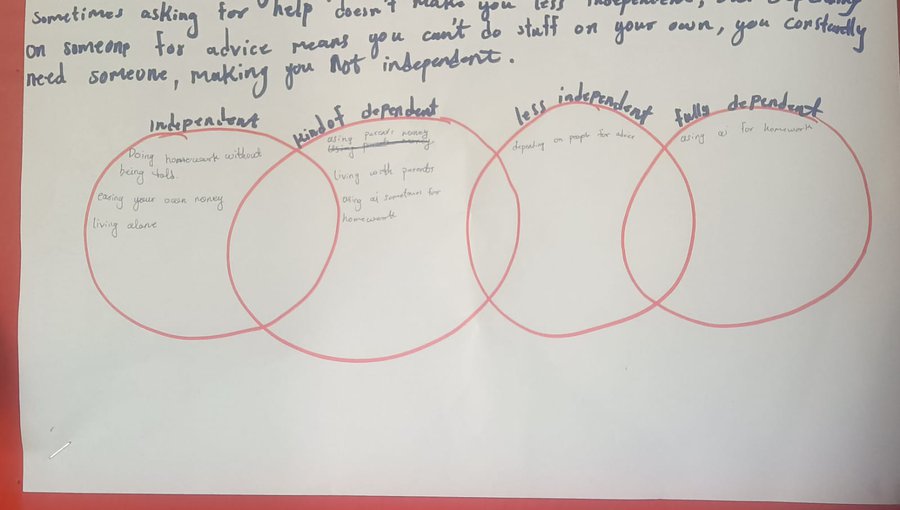 Sometimes asking for help doesn't make you less independent,
on someone for advice means you can't do stuff on your own, you constantly
need someone, making you Not independent.
independent
kind of dependent
less independent
fully dependent
Doing homework without
being told.
earing your own money
living alone
using parents money
using parents money
living with parents
using ai sometimes for
homework
depending on people for advice
using ai for homework